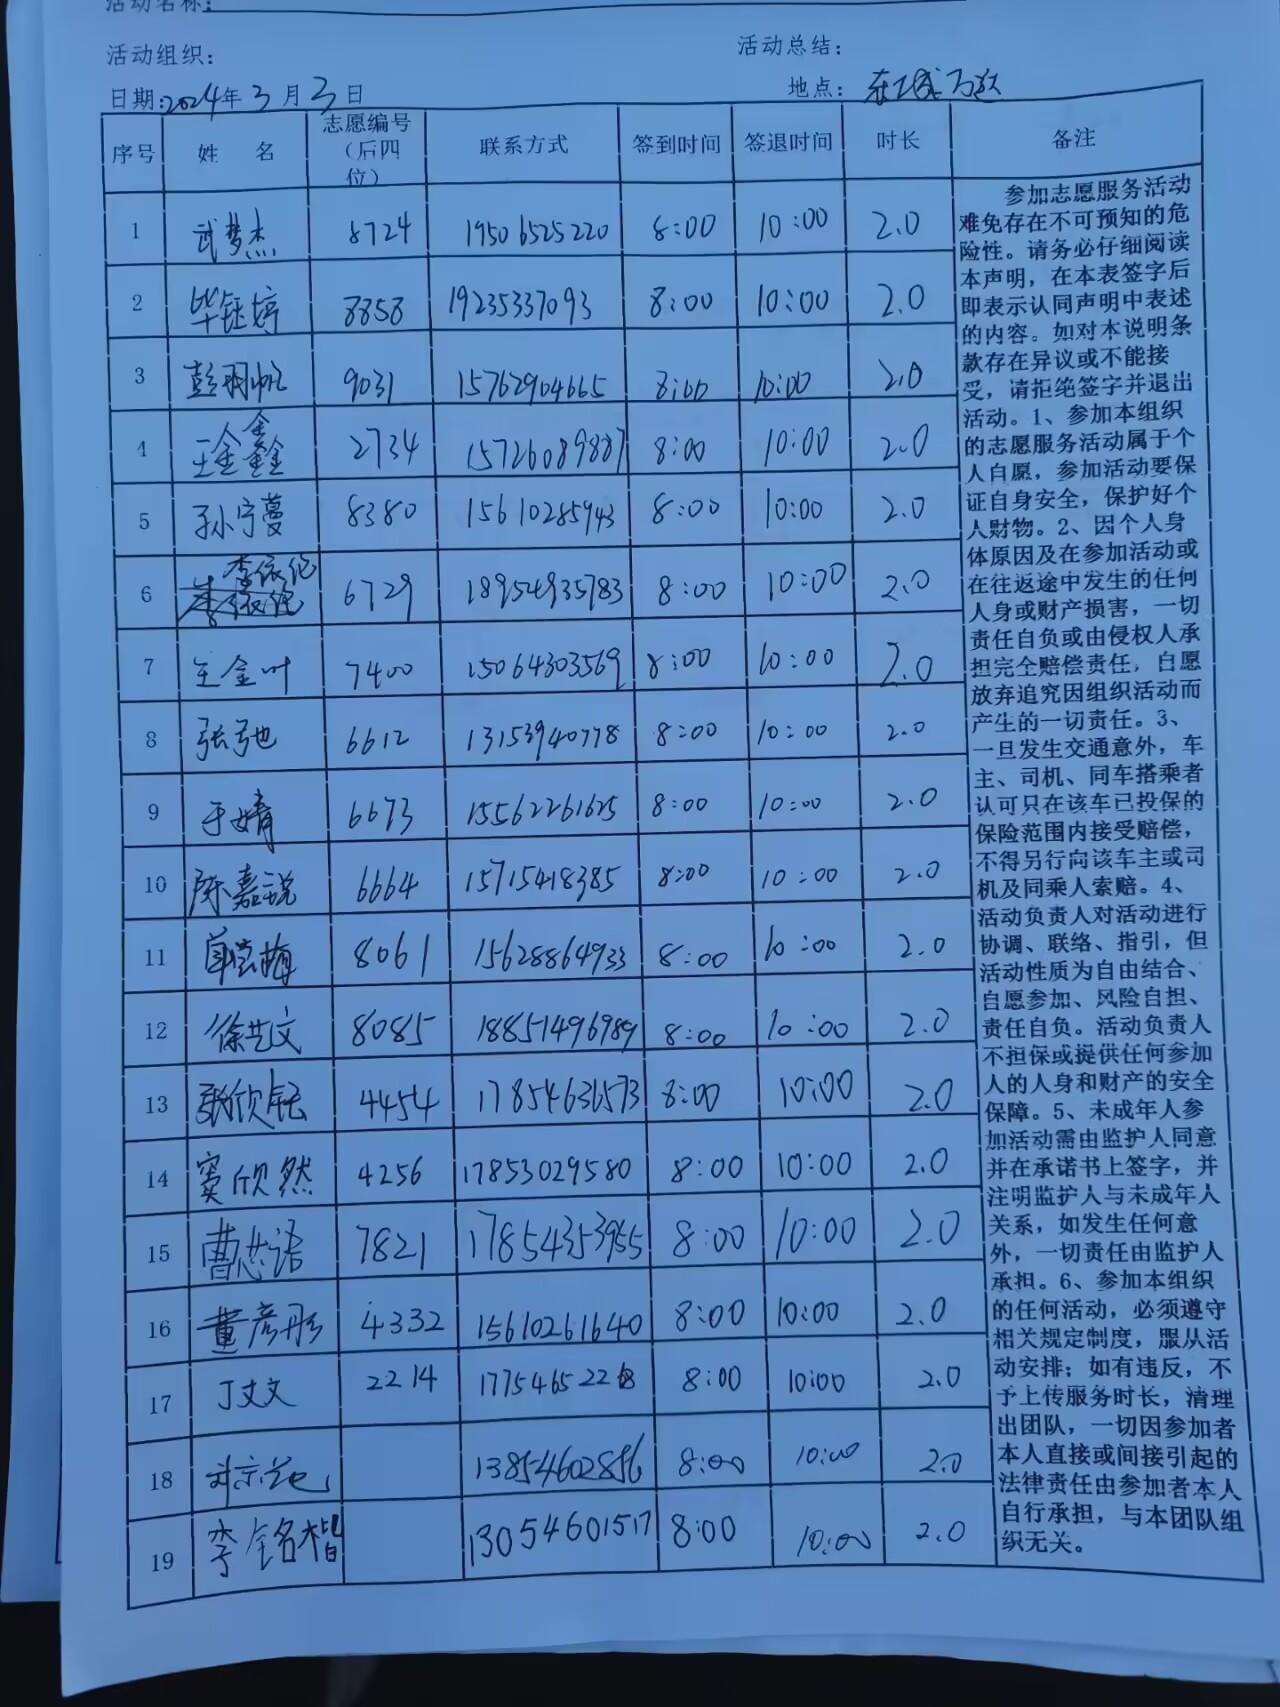 活动名称：
活动组织：
活动总结：
日期:2024年3月3日
地点：东城万达
序号 姓 名 志愿编号（后四位） 联系方式 签到时间 签退时间 时长 备注
1 武梦杰 8724 19506525220 8:00 10:00 2.0
2 毕钰婷 8858 19235337093 8:00 10:00 2.0
3 彭明帆 9031 15762904665 8:00 10:00 2.0
4 王金鑫 2734 15726089887 8:00 10:00 2.0
5 孙宁蔓 8380 15610285943 8:00 10:00 2.0
6 李依伦 6729 18954935783 8:00 10:00 2.0
7 王金叶 7400 15064303569 8:00 10:00 2.0
8 张弛 6612 13153940778 8:00 10:00 2.0
9 于婧 6673 15562261625 8:00 10:00 2.0
10 陈嘉锐 6664 15715418385 8:00 10:00 2.0
11 8061 15628864933 8:00 10:00 2.0
12 徐艺文 8085 18851496989 8:00 10:00 2.0
13 张欣钰 4454 17854636573 8:00 10:00 2.0
14 窦欣然 4256 17853029580 8:00 10:00 2.0
15 曹思语 7821 17854353955 8:00 10:00 2.0
16 董彦彤 4332 15610261640 8:00 10:00 2.0
17 丁文文 2214 8:00 10:00 2.0
18 13854602856 8:00 10:00 2.0
19 李铭楷 13054601517 8:00 10:00 2.0
参加志愿服务活动
难免存在不可预知的危
险性。请务必仔细阅读
本声明，在本表签字后
即表示认同声明中表述
的内容。如对本说明条
款存在异议或不能接
受，请拒绝签字并退出
活动。1、参加本组织
的志愿服务活动属于个
人自愿，参加活动要保
证自身安全，保护好个
人财物。2、因个人身
体原因及在参加活动或
在往返途中发生的任何
人身或财产损害，一切
责任自负或由侵权人承
担完全赔偿责任，自愿
放弃追究因组织活动而
产生的一切责任。3、
一旦发生交通意外，车
主、司机、同车搭乘者
认可只在该车已投保的
保险范围内接受赔偿，
不得另行向该车主或司
机及同乘人索赔。4、
活动负责人对活动进行
协调、联络、指引，但
活动性质为自由结合、
自愿参加、风险自担、
责任自负。活动负责人
不担保或提供任何参加
人的人身和财产的安全
保障。5、未成年人参
加活动需由监护人同意
并在承诺书上签字，并
注明监护人与未成年人
关系，如发生任何意
外，一切责任由监护人
承担。6、参加本组织
的任何活动，必须遵守
相关规定制度，服从活
动安排；如有违反，不
予上传服务时长，清理
出团队，一切因参加者
本人直接或间接引起的
法律责任由参加者本人
自行承担，与本团队组
织无关。